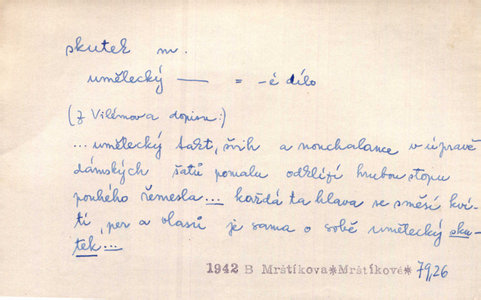 skutek m.
umělecký — = -é dílo
(z Vilémova dopisu:)
... umělecký takt, švih a nonchalance v úpravě
dámských šatů pomalu oddělují hrubou stopu
pouhého řemesla ... každá ta hlava se směsí kví-
tí, per a vlasů je sama o sobě umělecký sku-
tek ...
1942 B Mrštíkova*Mrštíkové* 79,26